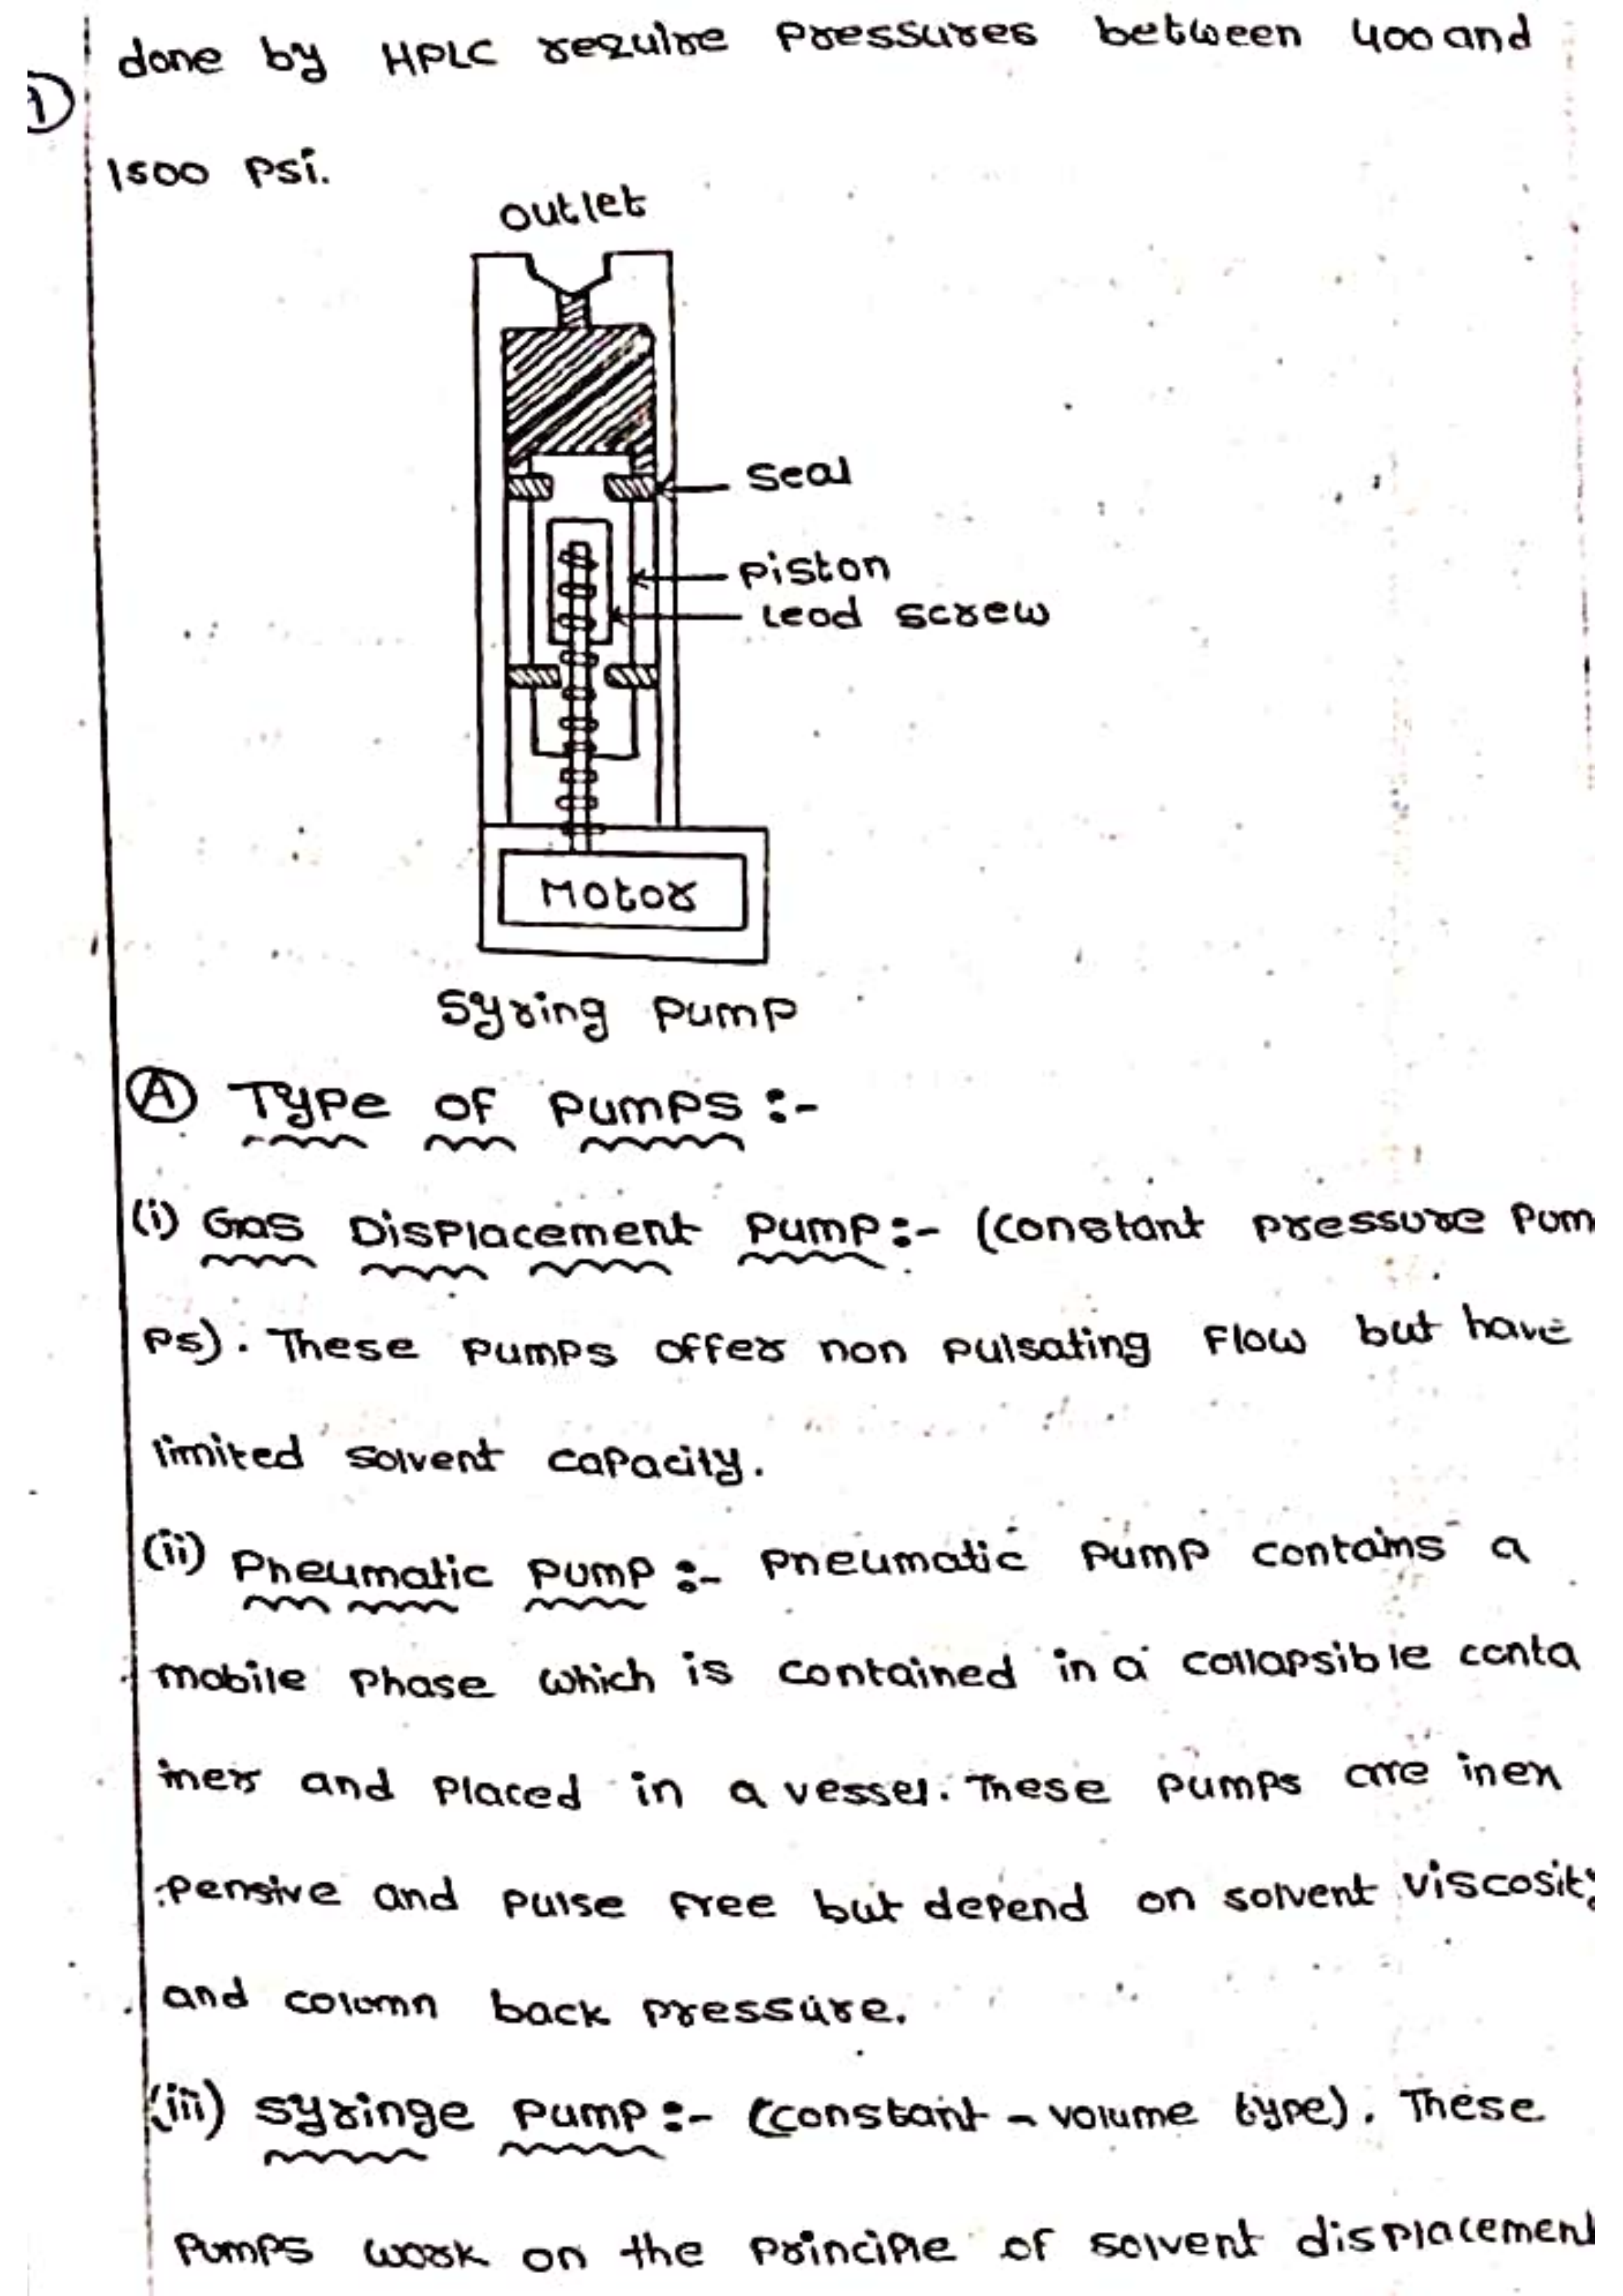 done by HPLC require pressures between 400 and
1)
1500 psi.
outlet
seal
piston
lead screw
Motor
Syring pump
(A) Type of pumps :-
(i) Gas Displacement pump:- (constant pressure pum
ps). These pumps offer non pulsating flow but have
limited solvent capacity.
(ii) Pneumatic pump :- pneumatic pump contains a
mobile phase which is contained in a collapsible conta
iner and placed in a vessel. These pumps are inex
pensive and pulse free but depend on solvent viscosity
and column back pressure.
(iii) syringe pump :- (constant - volume type). These
pumps work on the principle of solvent displacement